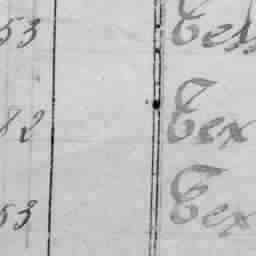 53 Tex
82 Tex
53 Tex